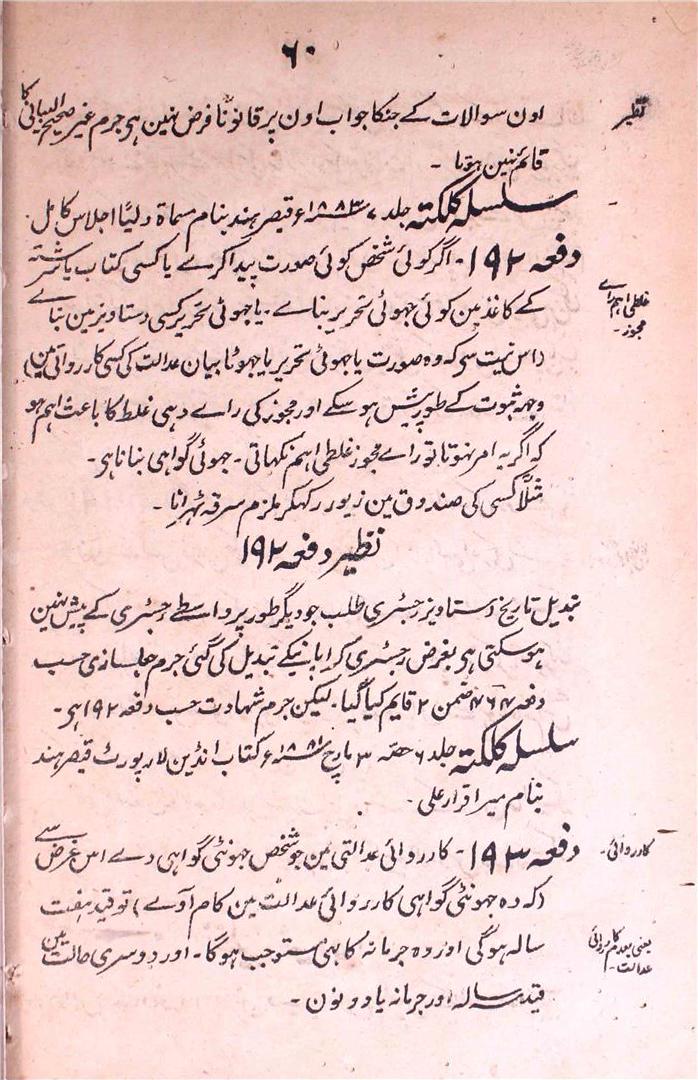 ۶۰
نظیر
اون سوالات کے جنکا جواب اون پر قانوناً فرض نہین ہی جرم غیر صحیح البیانی کا
قائم نہین ہوتا ۔
سلسلہ کلکتہ جلد ۷ ۱۸۸۳ء قیصر ہند بنام مسماۃ دلیا اجلاس کامل ۔
دفعہ ۱۹۲ ۔ اگر کوئی شخص کوئی صورت پیدا کرے یا کسی کتاب یا سررشتہ
غلطی اہم راے مجوز ۔
کے کاغذ مین کوئی جھوٹی تحریر بناے ۔ یا جھوٹی تحریر کسی دستاویز مین بناے
(اس نیت سی کہ وہ صورت یا جھوٹی تحریر یا جھوٹا بیان عدالت کی کسی کارروائی مین)
وجہہ ثبوت کے طور پیش ہو سکے اور مجوز کی راے دہی غلط کا باعث اہم ہو
کہ اگر یہ امر نہوتا تو راے مجوز غلطی اہم نکہاتی ۔ جھوٹی گواہی بنانا ہی ۔
مثلاً کسی کی صندوق مین زیور رکہکر ملزم سرقہ ٹہرانا ۔
نظیر دفعہ ۱۹۲
تبدیل تاریخ دستاویز رجسٹری طلب جو دیگر طور پر واسطے رجسٹری کے پیش نہین
ہوسکتی ہی بغرض رجسٹری کرا پانیکے تبدیل کی گئی جرم جلسازی حسب
دفعہ ۴۶۴ ضمن ۲ قایم کیا گیا ۔ لیکن جرم شہادت حسب دفعہ ۱۹۲ ہی ۔
سلسلہ کلکتہ جلد ۶ حصہ ۳ مارچ ۱۸۸۱ء کتاب انڈین لا رپورٹ قیصر ہند
بنام میر اقرار علی ۔
کارروائی ۔
دفعہ ۱۹۳ ۔ کارروائی عدالتی مین جو شخص جھوٹی گواہی دے اس غرض سے
(کہ وہ جھوٹی گواہی کارروائی عدالت مین کام آوے) تو قید ہفت
یعنی بعد کارروائی عدالت ۔
سالہ ہوگی اور وہ جرمانہ کا بہی مستوجب ہوگا ۔ اور دوسری حالت مین
قید سہ سالہ اور جرمانہ یا دونون ۔